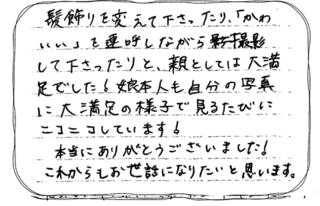 髪飾りを変えて下さったり、「かわ
いい」を連呼しながら撮影
して下さったりと、親としては大満
足でした!娘本人も自分の写真
に大満足の様子で見るたびに
ニコニコしています!
本当にありがとうございました!
これからもお世話になりたいと思います。